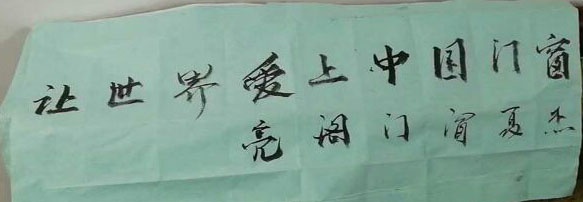 让世界爱上中国门窗
亮阁门窗夏杰